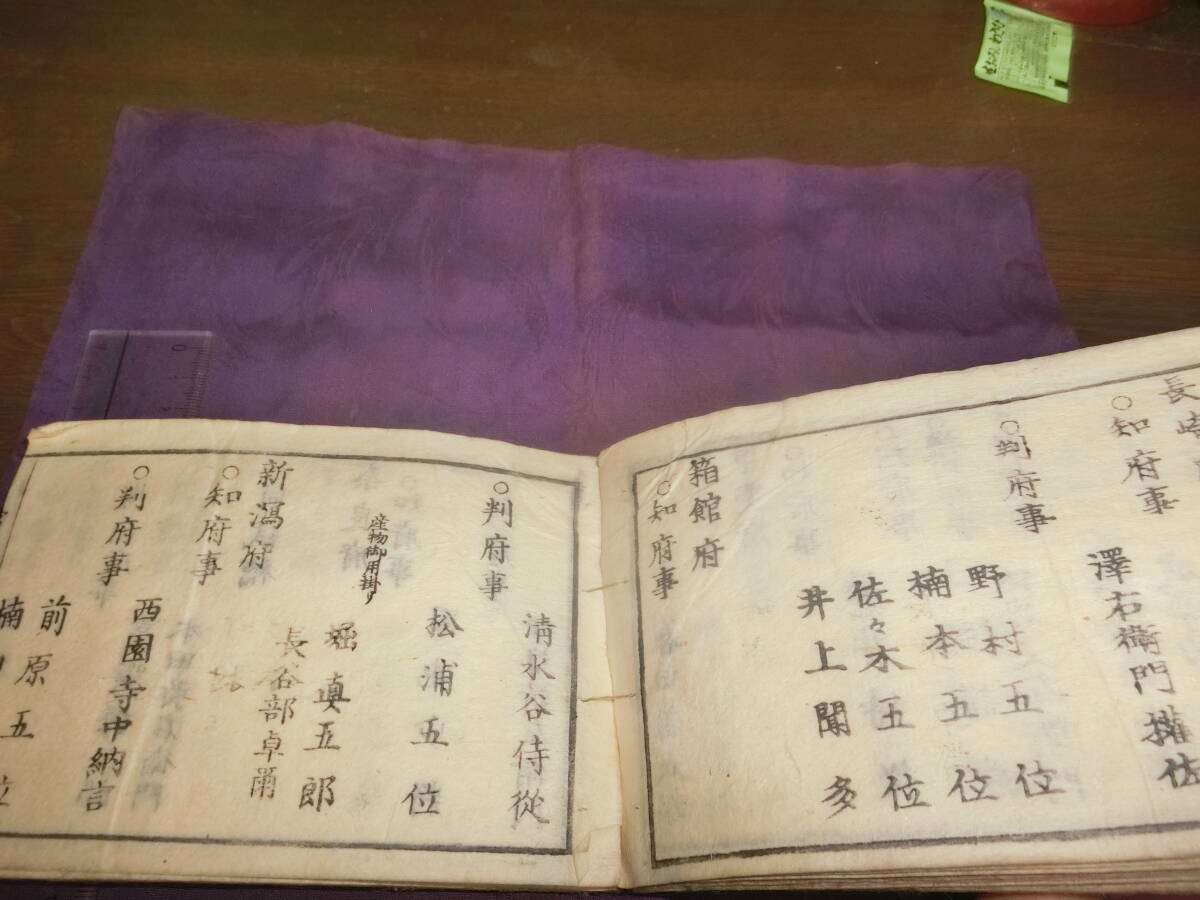 長崎
○知府事
澤右衛門權佐
○判府事
野村五位
楠本五位
佐々木五位
井上聞多
箱館府
○知府事
清水谷侍從
○判府事
松浦五位
産物御用掛り
堀真五郎
長谷部卓爾
新瀉府
○知府事
西園寺中納言
○判府事
前原五位
楠